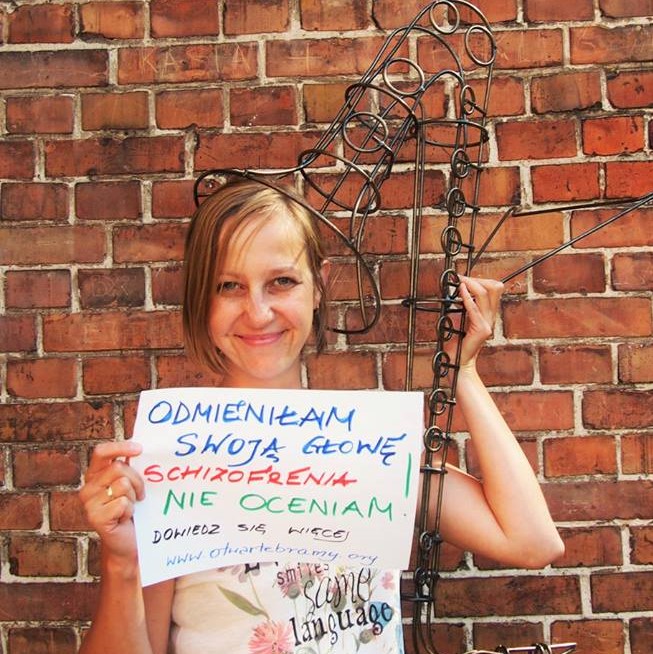 KASIA
ODMIENIŁAM
SWOJĄ GŁOWĘ
SCHIZOFRENIA
NIE OCENIAM!
DOWIEDZ SIĘ WIĘCEJ
www.otwartebramy.org
smiles
same
language